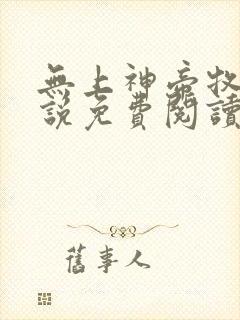 無上神帝牧
說免費閱讀
舊事人